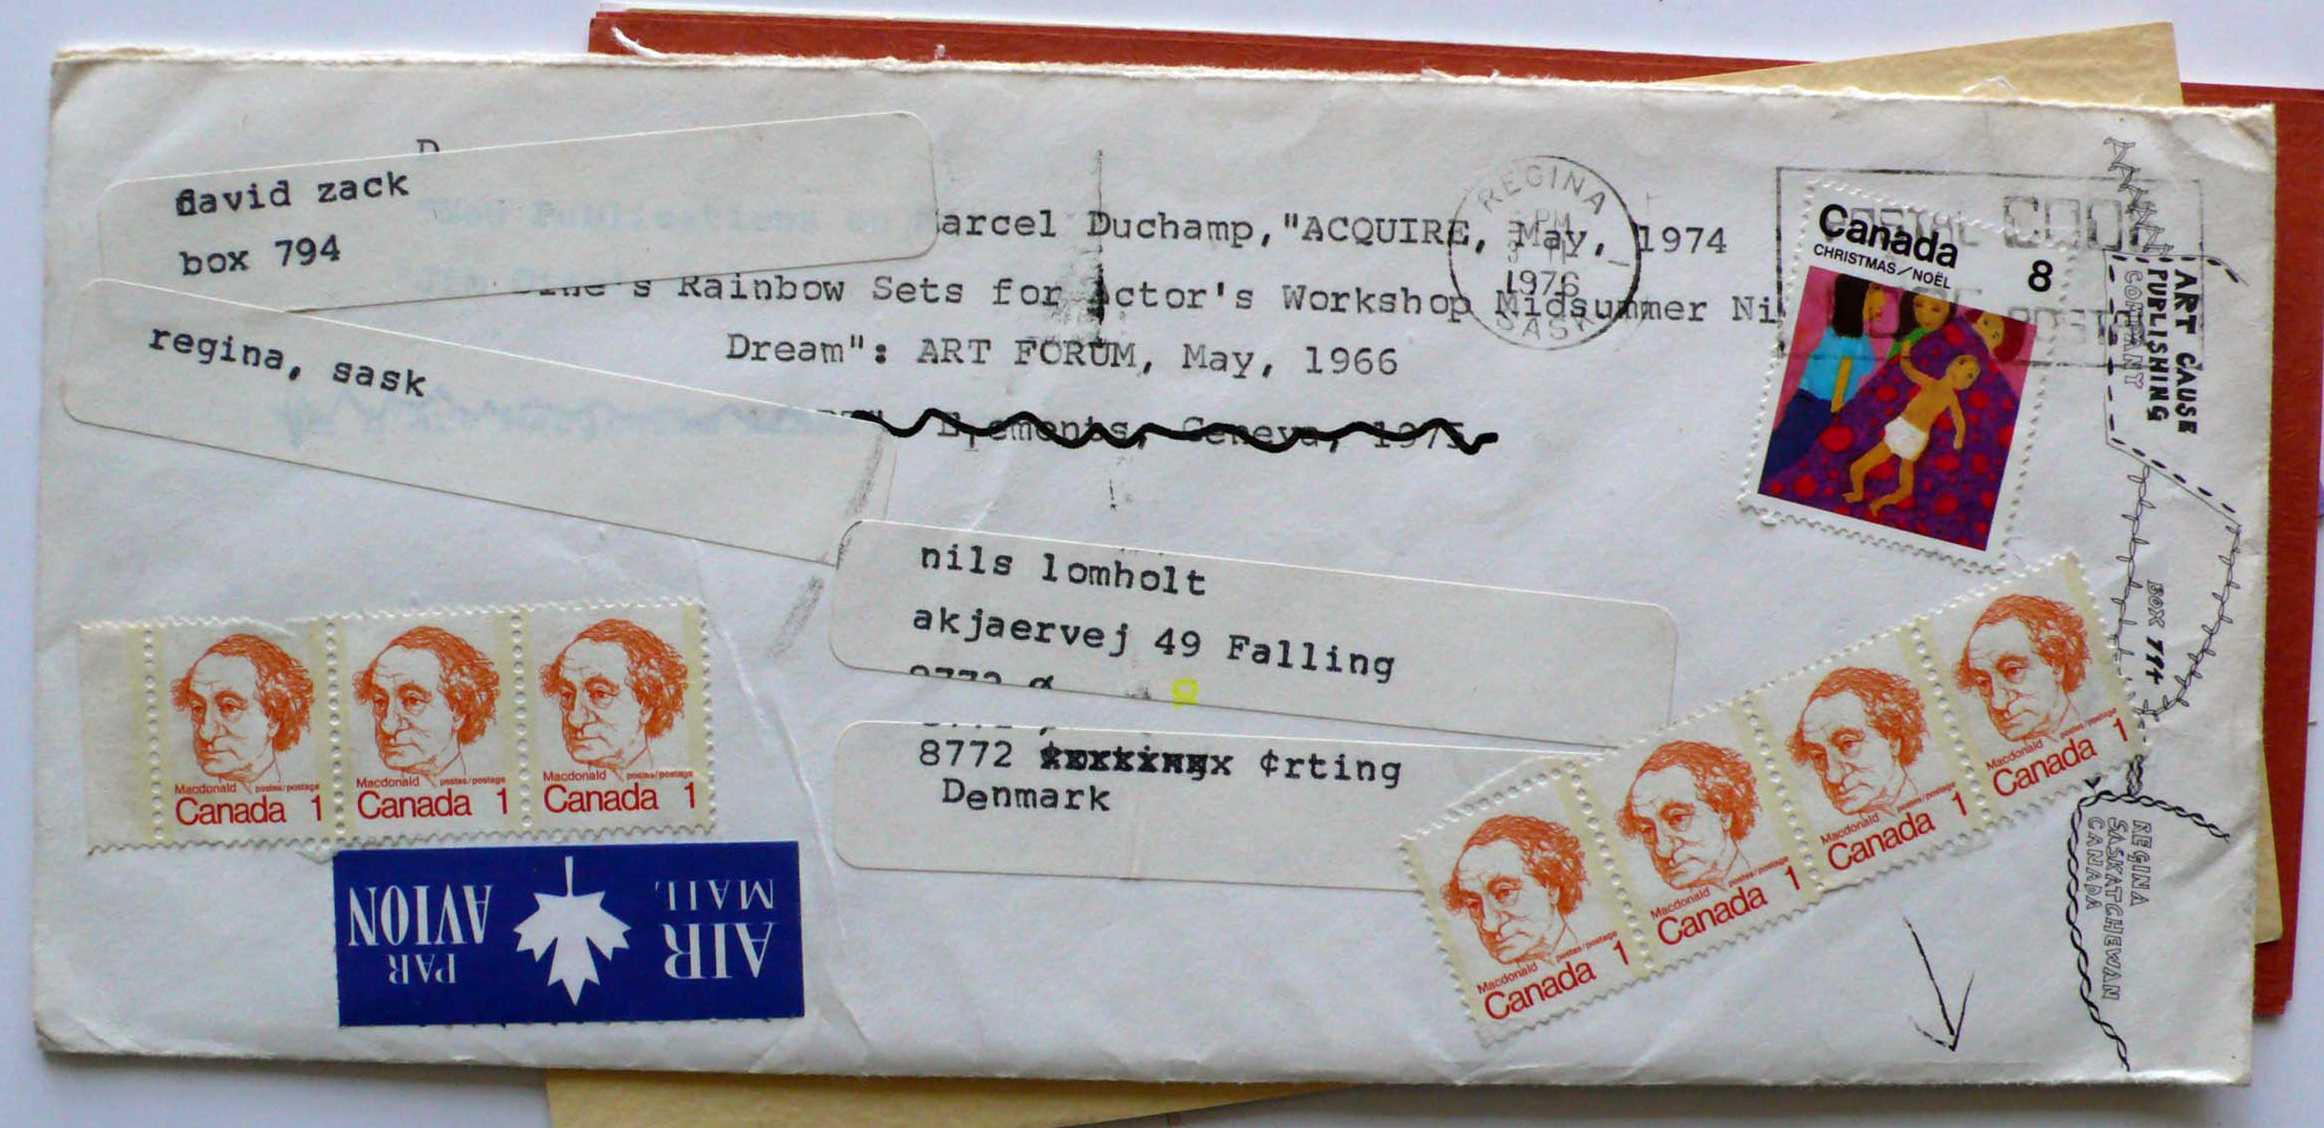 david zack
box 794
regina, sask
arcel Duchamp,"ACQUIRE, May, 1974
's Rainbow Sets for Actor's Workshop Midsummer Ni
Dream": ART FORUM, May, 1966
Elements, Geneva, 1975
REGINA
PM
1976
SASK
Canada
CHRISTMAS/NOËL
8
POSTAL CODE
ART CAUSE
PUBLISHING
COMPANY
BOX 794
REGINA
SASKATCHEWAN
CANADA
nils lomholt
akjaervej 49 Falling
8772 ¢rting
Denmark
Macdonald postes/postage
Canada 1
Macdonald postes/postage
Canada 1
Macdonald postes/postage
Canada 1
Macdonald postes/postage
Canada 1
Macdonald postes/postage
Canada 1
Macdonald postes/postage
Canada 1
Macdonald postes/postage
Canada 1
AIR MAIL
PAR AVION